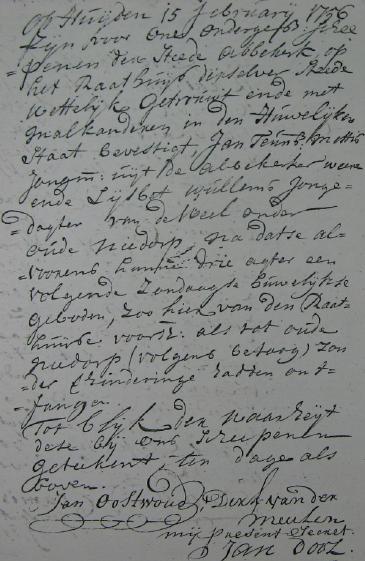 op Huijden 15 februarij 1756
Zijn voor ons ondergess: Schee
=penen der Steede Abbekerk op
het Raathuijs derselver Steede
wettelijk getrouwt ende met
malkanderen in den Huwelijken
Staat bevestigt, Jan Teunisz:
Jongm: uijt de Abbekerker weere
ende Lijsbet Willems Jonge=
=dogter van de Weel onder
oude niedorp, na datse al=
=voorens hunne drie agter een
volgende Zondaagse huwelijkse
geboden, zoo hier van den Raat=
huuse voorsz: als tot oude
niedorp (volgens betoog) zon
=der Verhinderinge hadden ont=
=fangen.
Tot blijk der waarheijt
dese bij ons Scheepenen
getekent, ten dage als
boven.
Jan Oostwoud, Dirk van der
Meulen
mij present Secret.
Jan Pool.